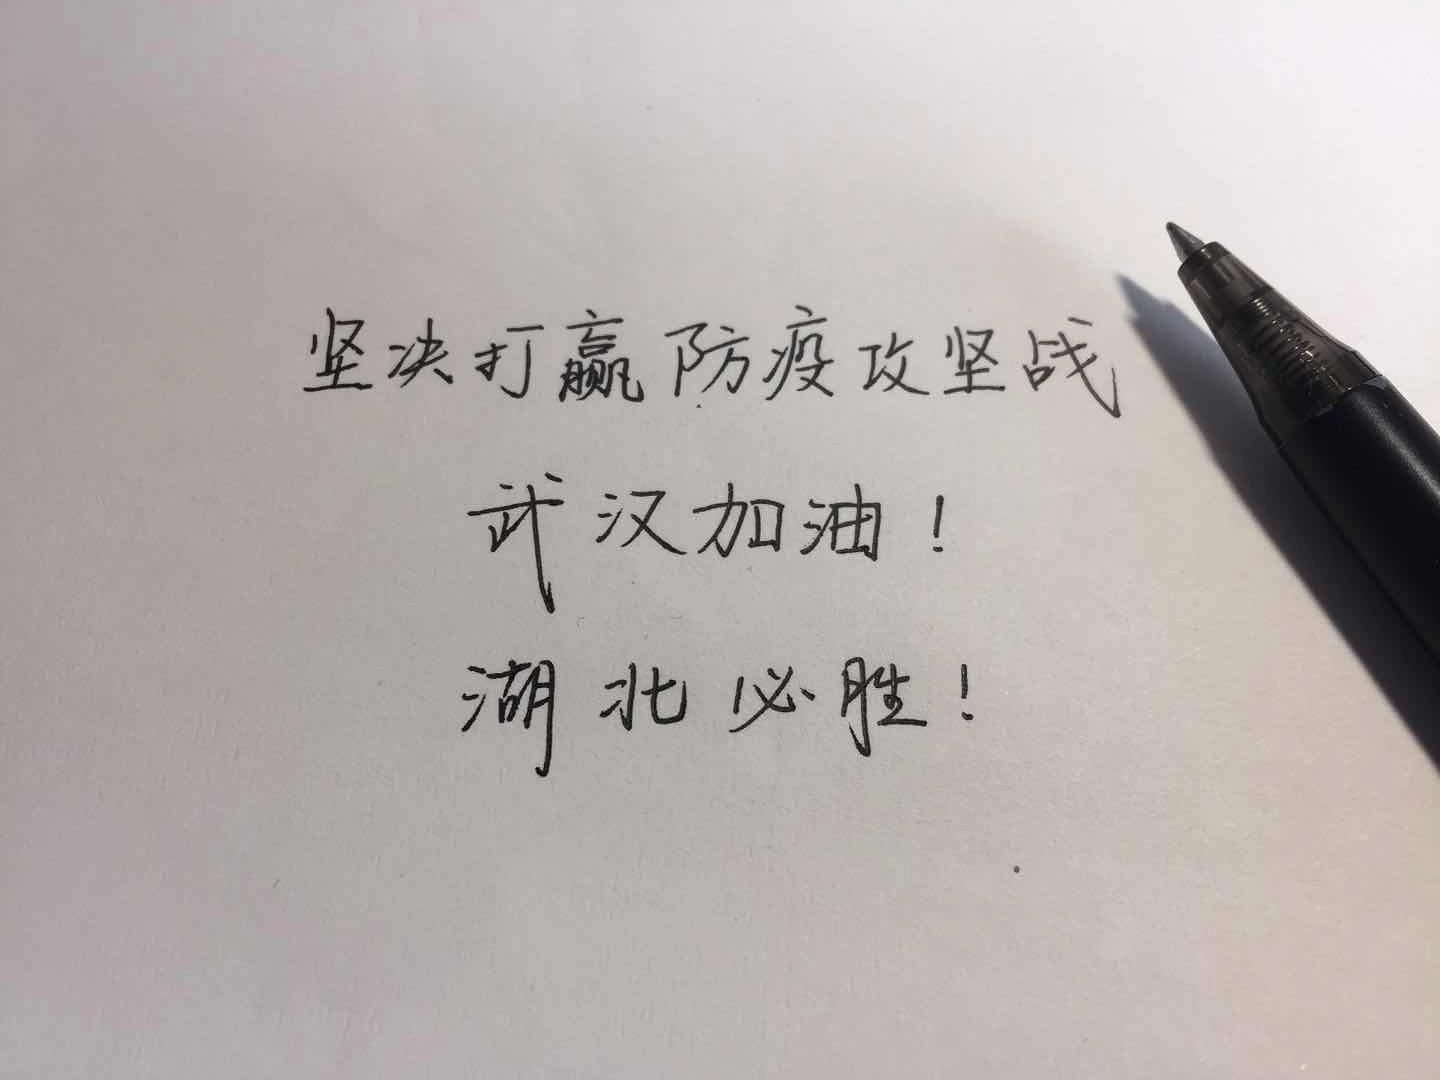 坚决打赢防疫攻坚战
武汉加油！
湖北必胜！